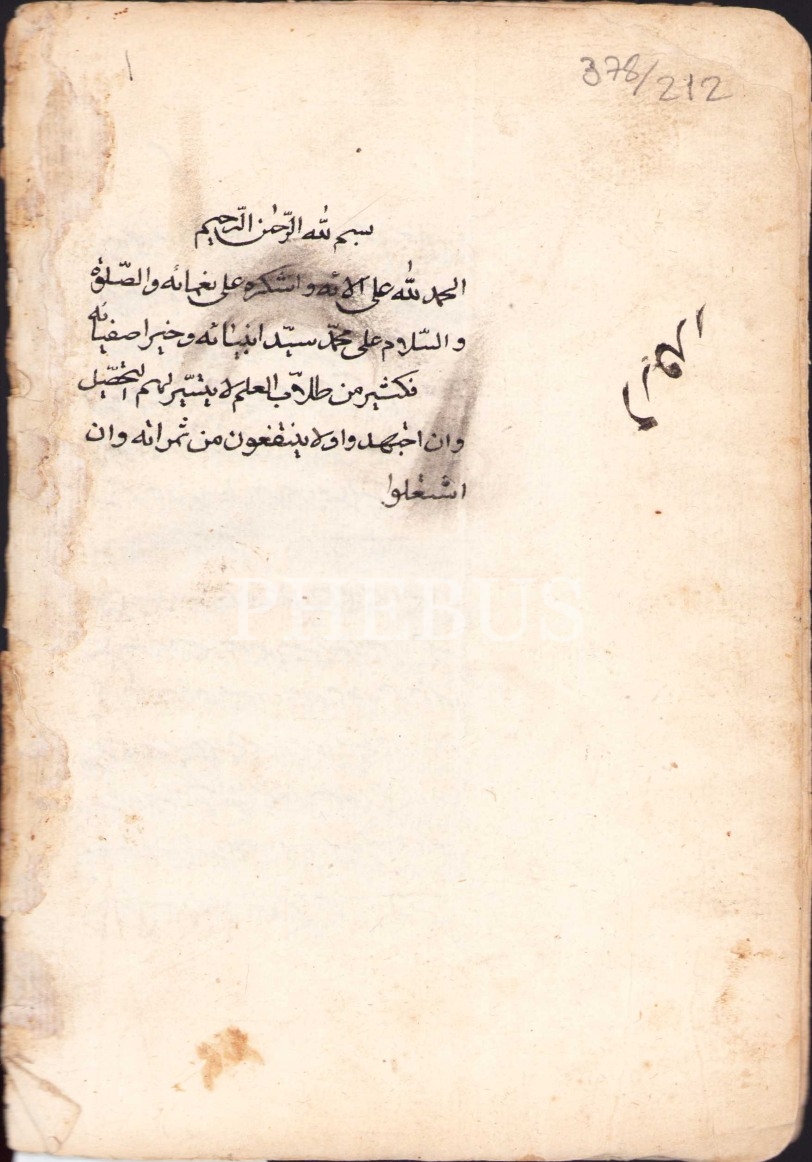 378/212
بسم لله الرّحمٰن الرّحيم
الحمد لله على آلائه واشكره على نعمائه والصّلوة
والسّلام على محمّد سيّد انبيائه وخير اصفيائه
فكثير من طلاّب العلم لا يتيسّر لهم التحصّيل
وان اجتهدوا ولا ينتفعون من ثمراته وان
اشتغلوا
PHEBUS